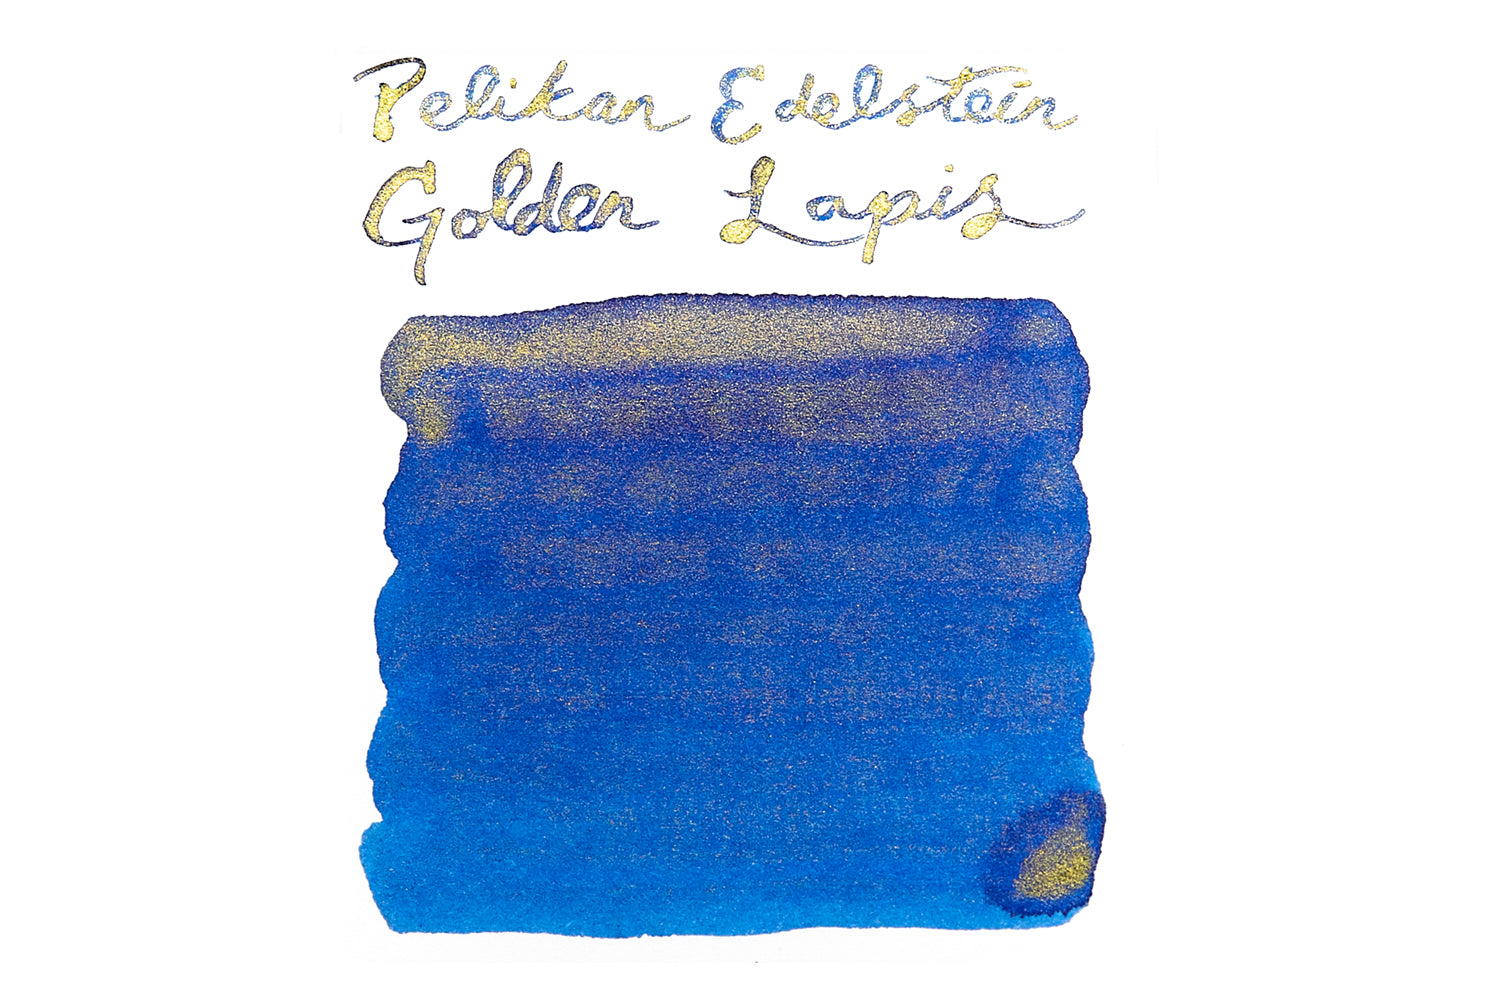 Pelikan Edelstein
Golden Lapis